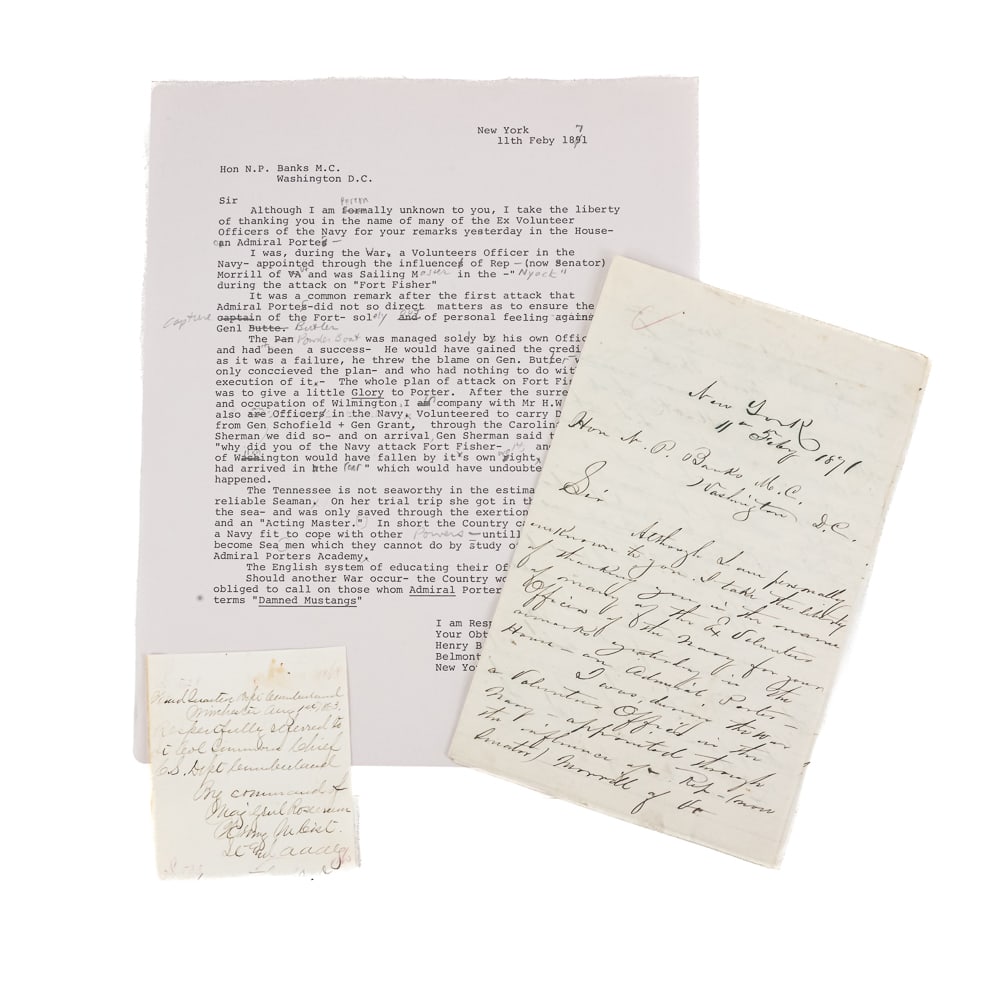 New York 7
11th Feby 1891
Hon N.P. Banks M.C.
Washington D.C.
Sir
Although I am formally unknown to you, I take the liberty
of thanking you in the name of many of the Ex Volunteer
Officers of the Navy for your remarks yesterday in the House-
an Admiral Porter –
I was, during the War, a Volunteers Officer in the
Navy- appointed through the influence of Rep – (now Senator)
Morrill of and was Sailing Master in the -"Nyack"
during the attack on "Fort Fisher"
It was a common remark after the first attack that
Admiral Porter-did not so direct matters as to ensure the
capture captain of the Fort- solely and of personal feeling agains
Genl Butte. Butler
The Pan Powder Boat was managed soldy by his own Offic
and had been a success- He would have gained the credi
as it was a failure, he threw the blame on Gen. Butler-
only conccieved the plan- and who had nothing to do wit
execution of it.- The whole plan of attack on Fort Fis
was to give a little Glory to Porter. After the surre
and occupation of Wilmington I company with Mr H.W
also are Officers in the Navy, Volunteered to carry D
from Gen Schofield + Gen Grant, through the Carolin
Sherman we did so- and on arrival Gen Sherman said t
"why did you of the Navy attack Fort Fisher-
of Washington would have fallen by it's own
had arrived in the rear" which would have undoubte
happened.
The Tennessee is not seaworthy in the estima
reliable Seaman. On her trial trip she got in th
the sea- and was only saved through the exertion
and an "Acting Master." In short the Country c
a Navy fit to cope with other Powers – untill
become Sea men which they cannot do by study o
Admiral Porters Academy.
The English system of educating their Of
Should another War occur- the Country wo
obliged to call on those whom Admiral Porter
terms "Damned Mustangs"
I am Resp
Your Obt
Henry B
Belmont
New Yo
New York
11 Feby 1871
Hon N. P. Banks M.C.
Washington D.C.
Sir
Although I am personally
unknown to you, I take the liberty
of thanking you in the name
of many of the Ex Volunteer
Officers of the Navy for your
remarks yesterday in the
House – on Admiral Porter –
I was, during the War
a Volunteer Officer in the
Navy – appointed through
the influence of Rep – (now
Senator) Morrill of
Head Quarters Dept Cumberland
Winchester Aug 1863
Respectfully referred to
Lt Col Simmons Chief
C.S. Dept Cumberland
By command of
Maj Genl Rosecrans